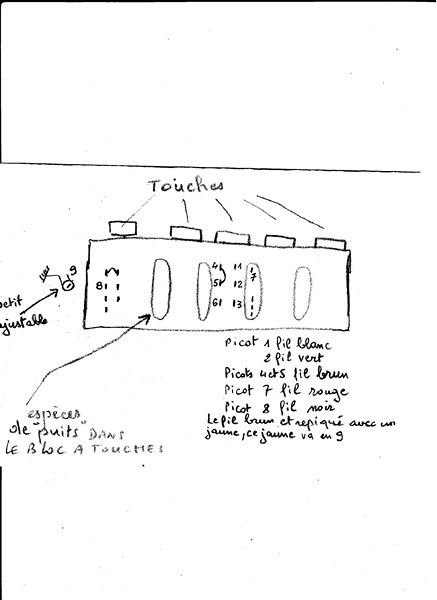 Touches
9
petit
ajustable
8
4 11
7
5 12
6 13
Picot 1 fil blanc
2 fil vert
Picots 4et5 fil brun
Picot 7 fil rouge
Picot 8 fil noir
Le fil brun et repiqué avec un
jaune, ce jaune va en 9
espèces
de "puits" DANS
LE BLOC A TOUCHES